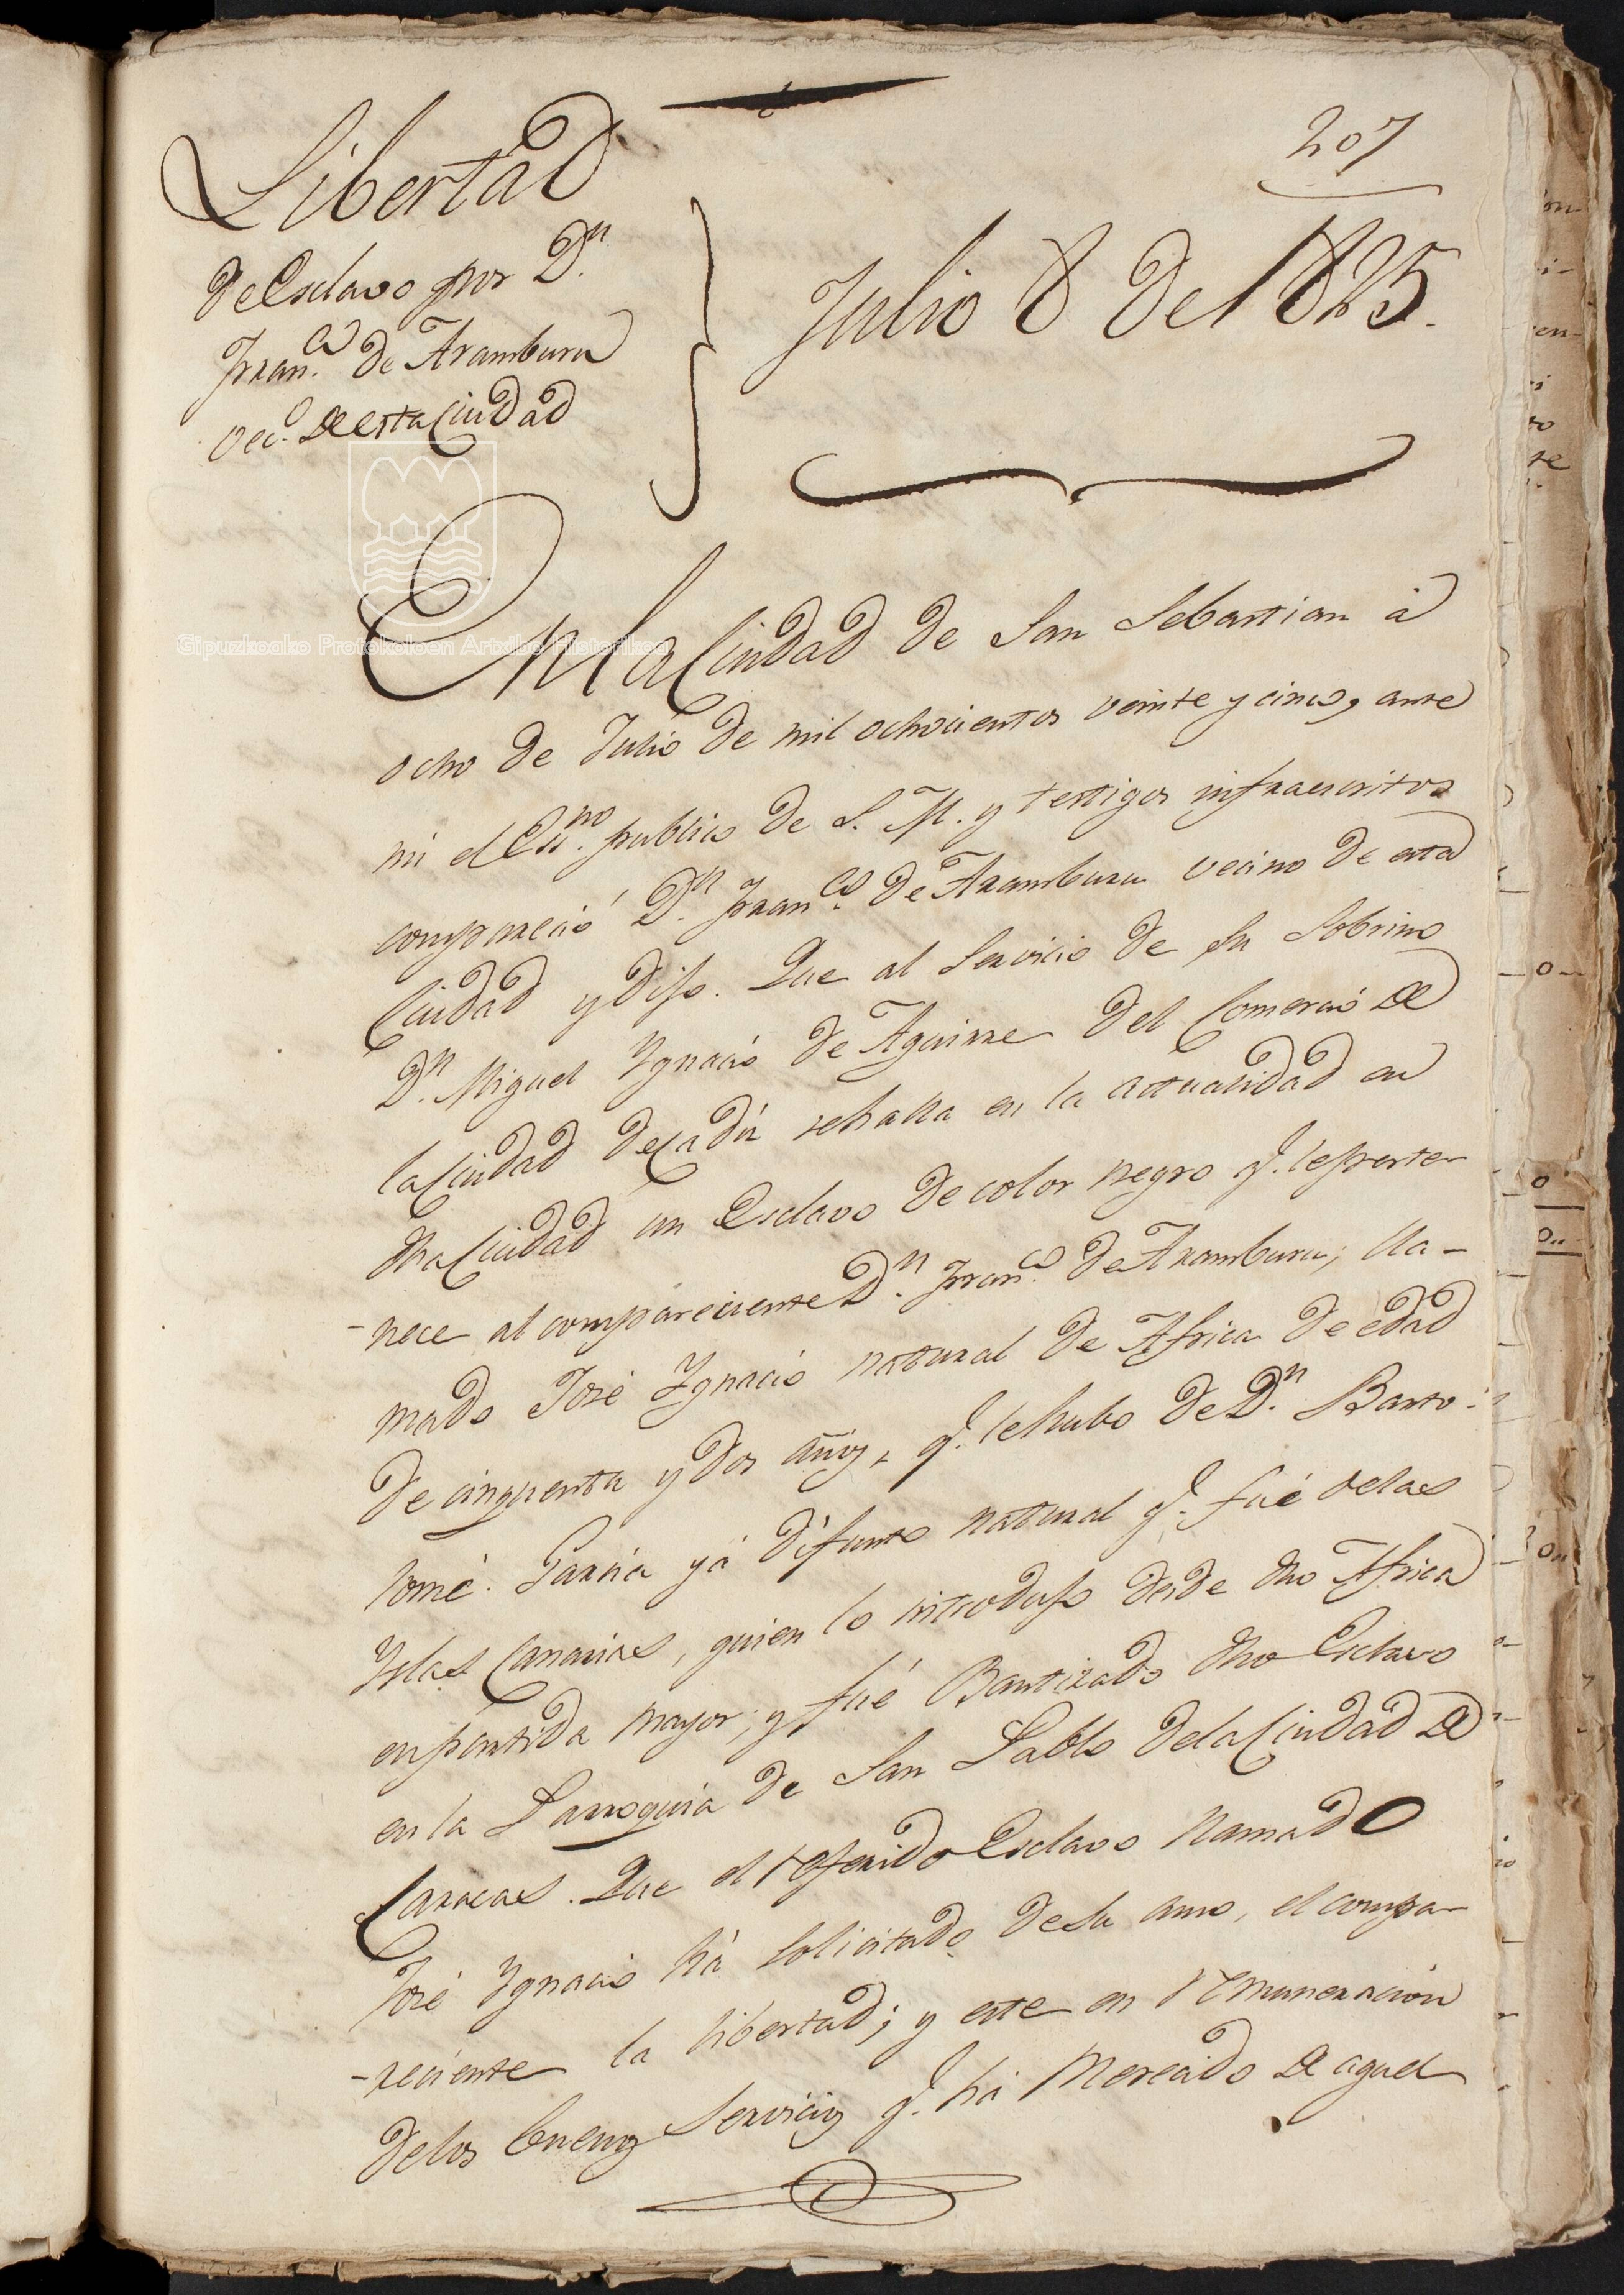 207
Libertad
de Esclavo por Dn.
Franco. de Aramburu
veco. de esta Ciudad
Julio 8 de 1825.
En la Ciudad de San Sebastian á
ocho de Julio de mil ochocientos veinte y cinco, ante
mi el Esno. publico de S. M. y testigos infraescritos
compareció Dn. Franco. de Aramburu vecino de esta
Ciudad y dijo. Que al servicio de su Sobrino
Dn. Miguel Ygnacio de Aguirre del Comercio de
la Ciudad de Cadiz se halla en la actualidad en
dha Ciudad un Esclavo de color negro q. le perte-
-nece al compareciente Dn. Franco. de Aramburu; lla-
mado José Ygnacio natural de Africa de edad
de cinquenta y dos años, q. le hubo de Dn. Barto-
lomé. Garcia yá difunto natural q. fué de las
Yslas Canarias, quien lo introdujo desde dho Africa
en partida mayor; y fué Bautizado dho Esclavo
en la Parroquia de San Pablo de la Ciudad de
Caracas. Que el referido Esclavo llamado
José Ygnacio há solicitado de su amo, el compa-
-reciente la libertad; y este en remuneracion
de los buenos servicios q. há merecido de aquel
Gipuzkoako Protokoloen Artxibo Historikoa